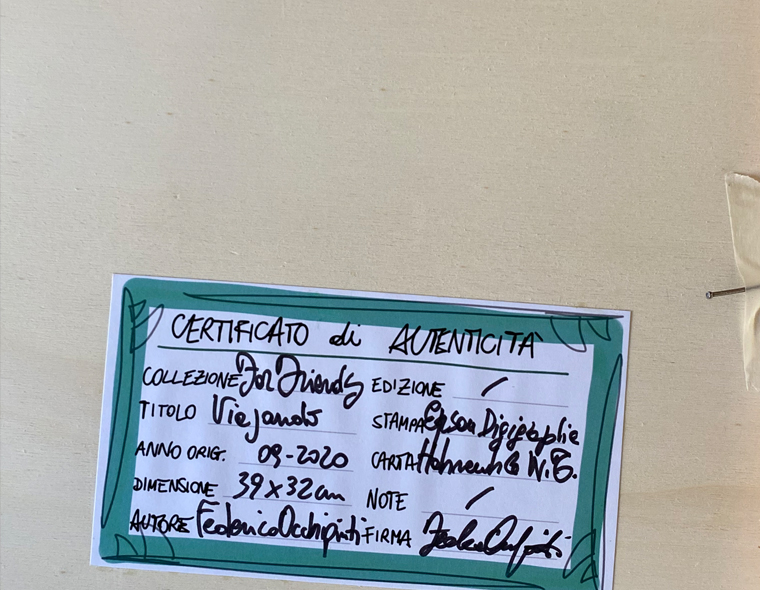 CERTIFICATO di AUTENTICITÀ
COLLEZIONE For Friends
EDIZIONE /
TITOLO Viejando
STAMPA Epson Digigraphie
ANNO ORIG. 09-2020
CARTA
DIMENSIONE 39x32cm
NOTE /
AUTORE Federico Occhipinti
FIRMA